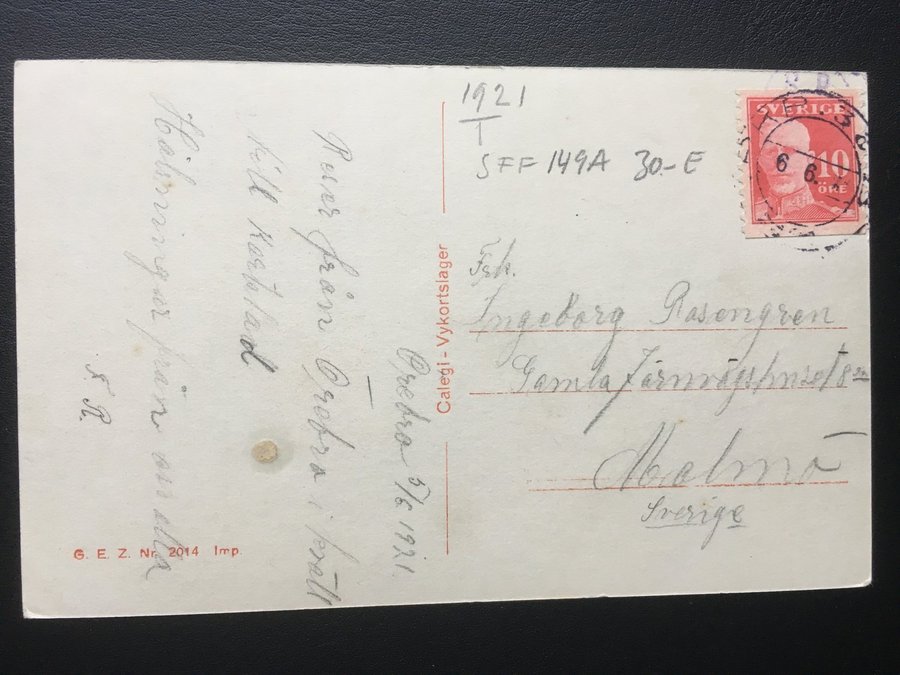 1921
1
SFF 149A 30-E
SVERIGE
10
ÖRE
6 6.
Frk.
Ingeborg Rosengren
Gamla
Malmö
Sverige
Calegi - Vykortslager
Örebro 5/6 1921.
Reser från Örebro i kväll
till Karlstad
Hälsningar från oss alla
R.
G. E. Z. Nr. 2014 Imp.